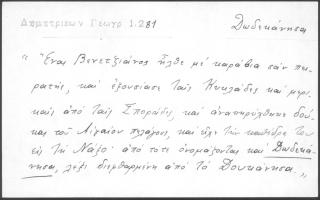 Δημητριέων Γεωγρ 1.281
Δωδεκάνησα
"Ἕνας Βενετζιάνος ἦλθε μέ καράβια σάν πει-
ρατής, καί ἐξουσίασε ταῖς Κυκλάδες καί μερι-
καῖς ἀπό ταῖς Σποράδες, καί ἀνακηρύχθηκε δού-
κας τοῦ Αἰγαίου πελάγους, καί εἶχε τήν καθέδρα του
εἰς τή Νάξο· ἀπό τότε ὀνομάζονται καί Δωδεκά-
νησα, λέξι διεφθαρμένη ἀπό τό Δουκάνησα.„